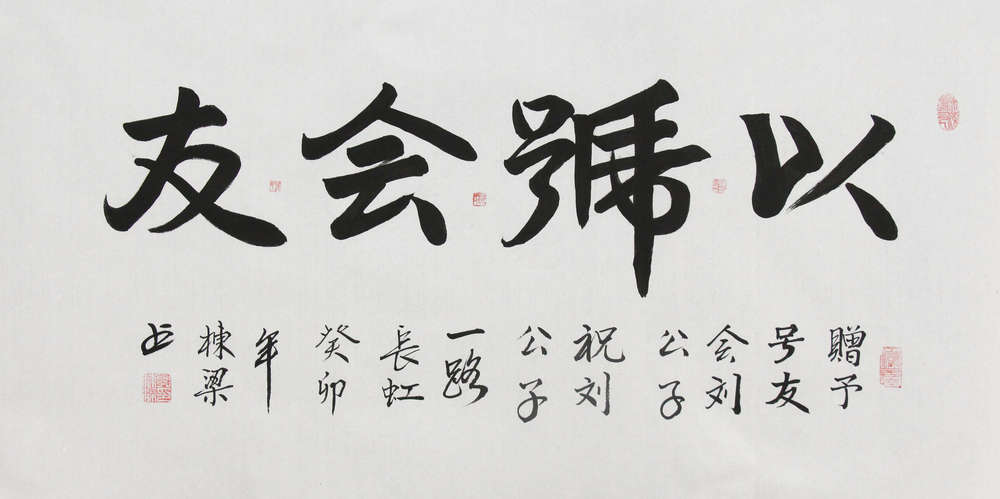 以號会友
赠予
号友
会刘
公子
祝刘
公子
一路
長虹
癸卯
年
棟梁
书